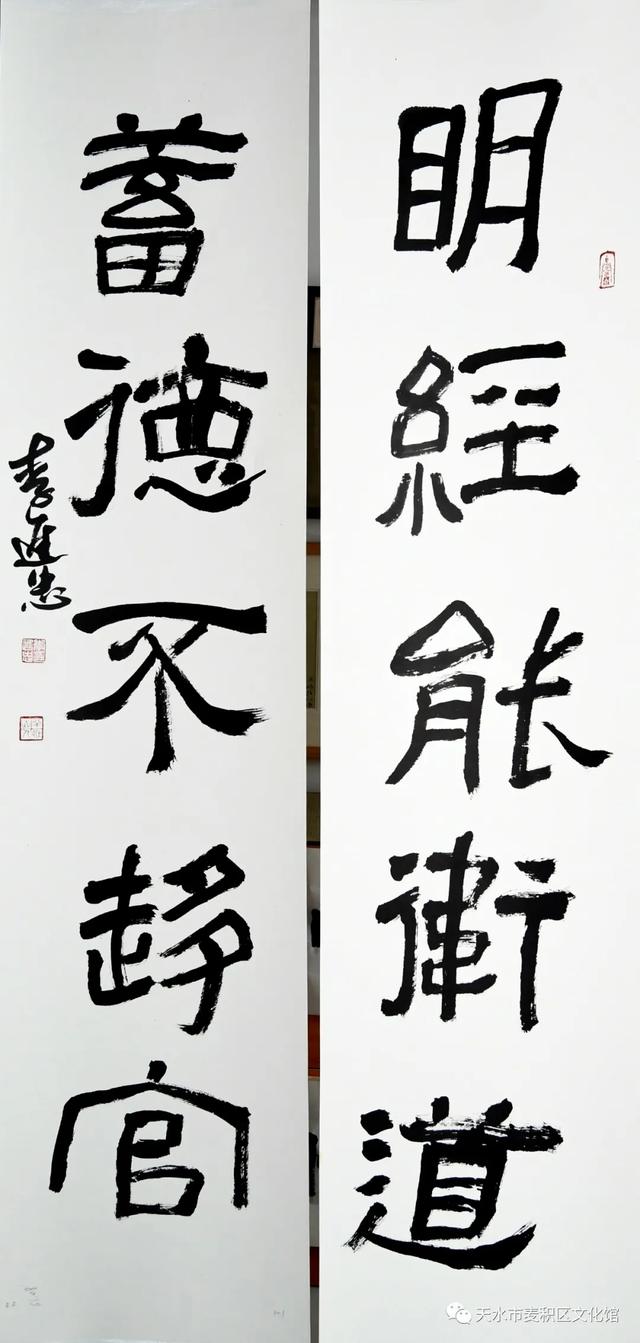 明經能衛道
蓄德不官
李進忠
天水市麦积区文化馆